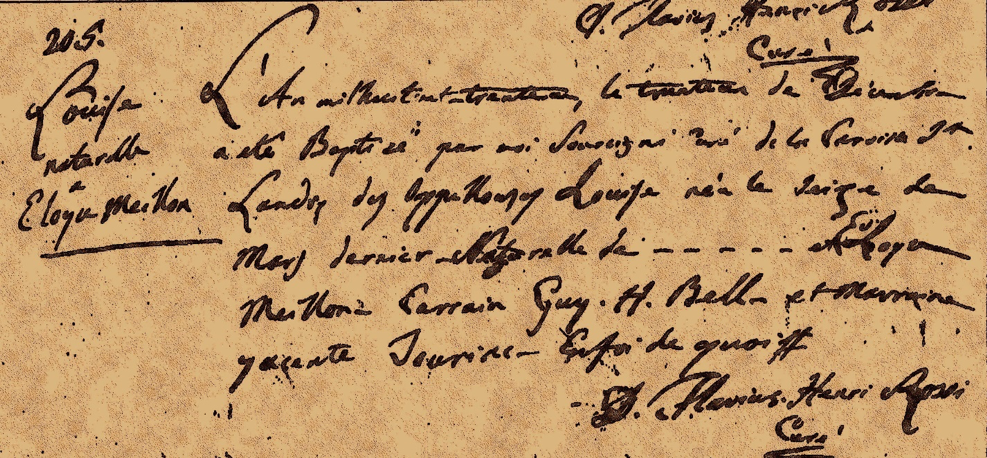 D. Flavius Henri Rossi
Curé
205.
Louise
naturelle
a
Eloye Meillon
L'An mil huit cent trente un, le trente un de Décembre
a été Baptisé par moi Soussigné Curé de la Paroisse St
Landry des Oppelousas Louise née le seize de
Mars dernier Naturelle de - - - - - - et Eloye
Meillon Parrain Guy. H. Bell et Marraine
yacente Jourine Enfoi de quoi
D. Flavius. Henri Rossi
Curé